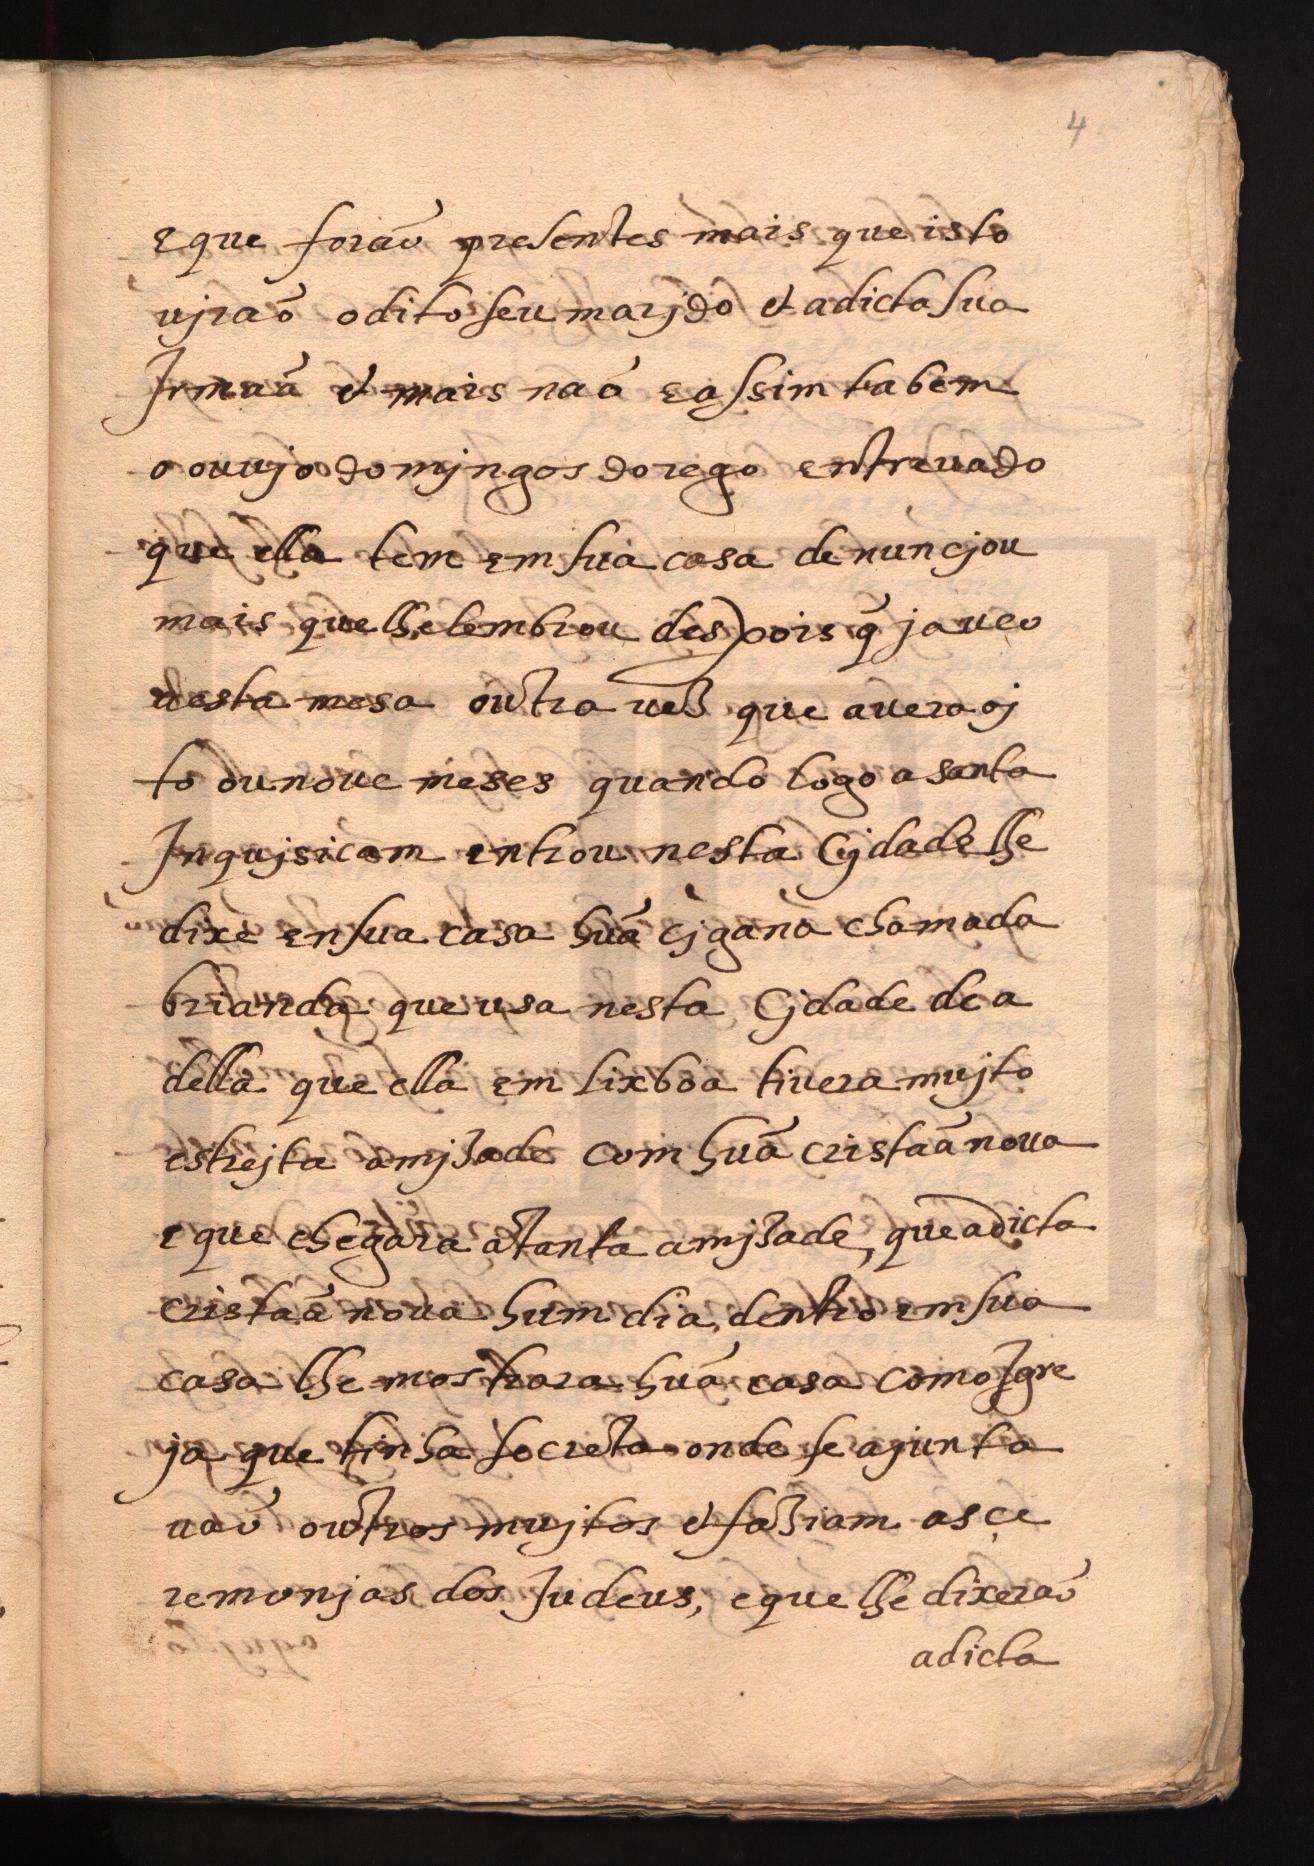 4
e que forão presentes mais que isto
vjrão o dito seu marjdo & a dicta sua
Jrmaã & mais não e assim tabem
o ouvjo domjngos do rego entrevado
que ella tem em sua casa denuncjou
mais que lhe lembrou despois q̃ ja veo
nesta mesa outra vez que avera oj
to ou nove meses quando logo a santa
Jnqujsicam entrou nesta Cjdade lhe
dixe en sua casa huã cjgana chamada
brianda que usa nesta Cjdade de a
della que ella em lixboa tivera mujto
estrejta amjzade com huã cristaã nova
e que chegara a tanta amjzade, que a dicta
cristaã nova hum dia, dentro em sua
casa lhe mostrara huã casa como Jgre
ja que tinha secreta onde se ajunta
vaõ outros mujtos & faziam as ce
remonjas dos Judeus, e que lhe dixeraõ
a dicta